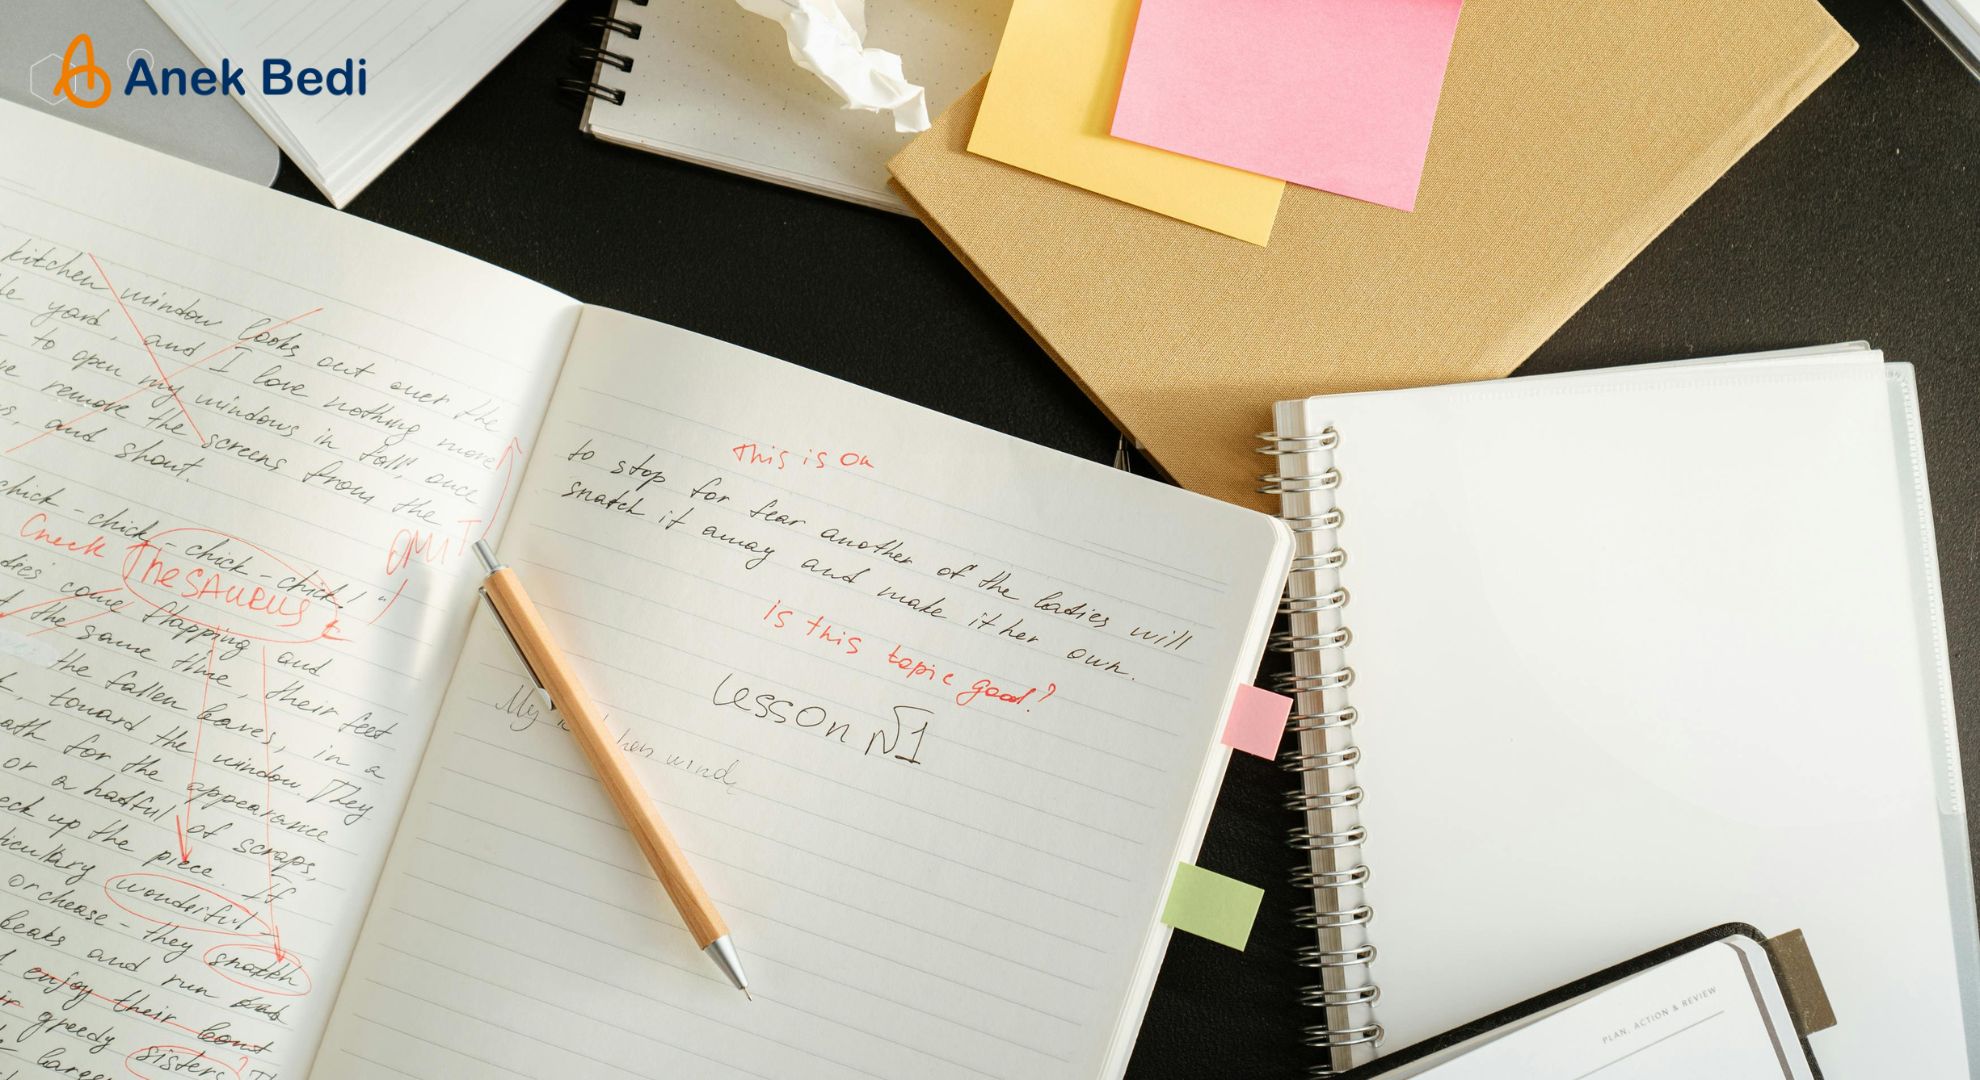 Anek Bedi
kitchen window looks out over the
yard, and I love nothing more
to open my windows in fall, once
remove the screens from the
and shout.
chick - chick - chick - chick!"
Check Thesaurus
OMIT
come flapping and
the same time, their feet
the fallen leaves, in a
toward the window. They
for the appearance
or a hatful of scraps,
up the piece. If
wonderful
or cheese - they snatch
beaks and run
enjoy their
greedy sisters?
This is ok
to stop for fear another of the ladies will
snatch it away and make it her own.
is this topic good?
Lesson N1
My
PLAN, ACTION & REVIEW